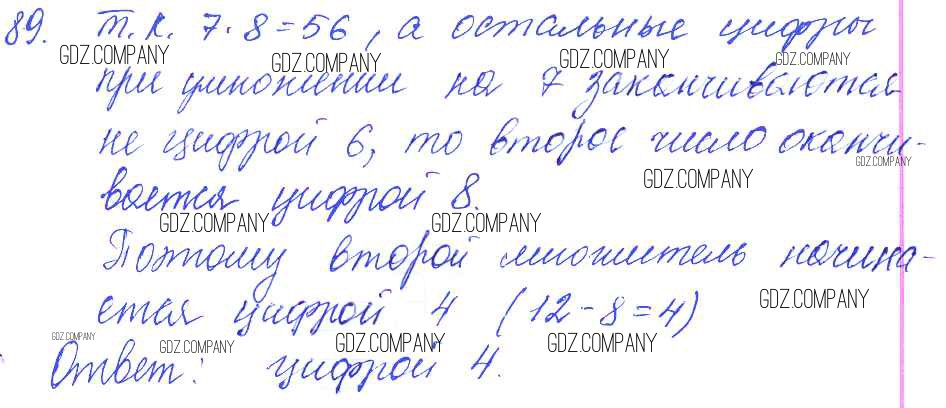 89. Т.к. 7·8=56, а остальные цифры
GDZ.COMPANY GDZ.COMPANY GDZ.COMPANY GDZ.COMPANY
при умножении на 7 заканчиваются
не цифрой 6, то второе число оканчи-
GDZ.COMPANY GDZ.COMPANY
вается цифрой 8.
GDZ.COMPANY GDZ.COMPANY
Поэтому второй множитель начина-
ется цифрой 4 (12-8=4)
GDZ.COMPANY
GDZ.COMPANY GDZ.COMPANY GDZ.COMPANY GDZ.COMPANY
Ответ: цифрой 4.